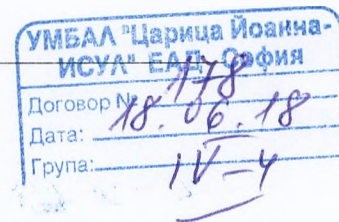 УМБАЛ "Царица Йоанна-
ИСУЛ" ЕАД, София
Договор № 178
Дата: 18.06.18
Група: IV-4